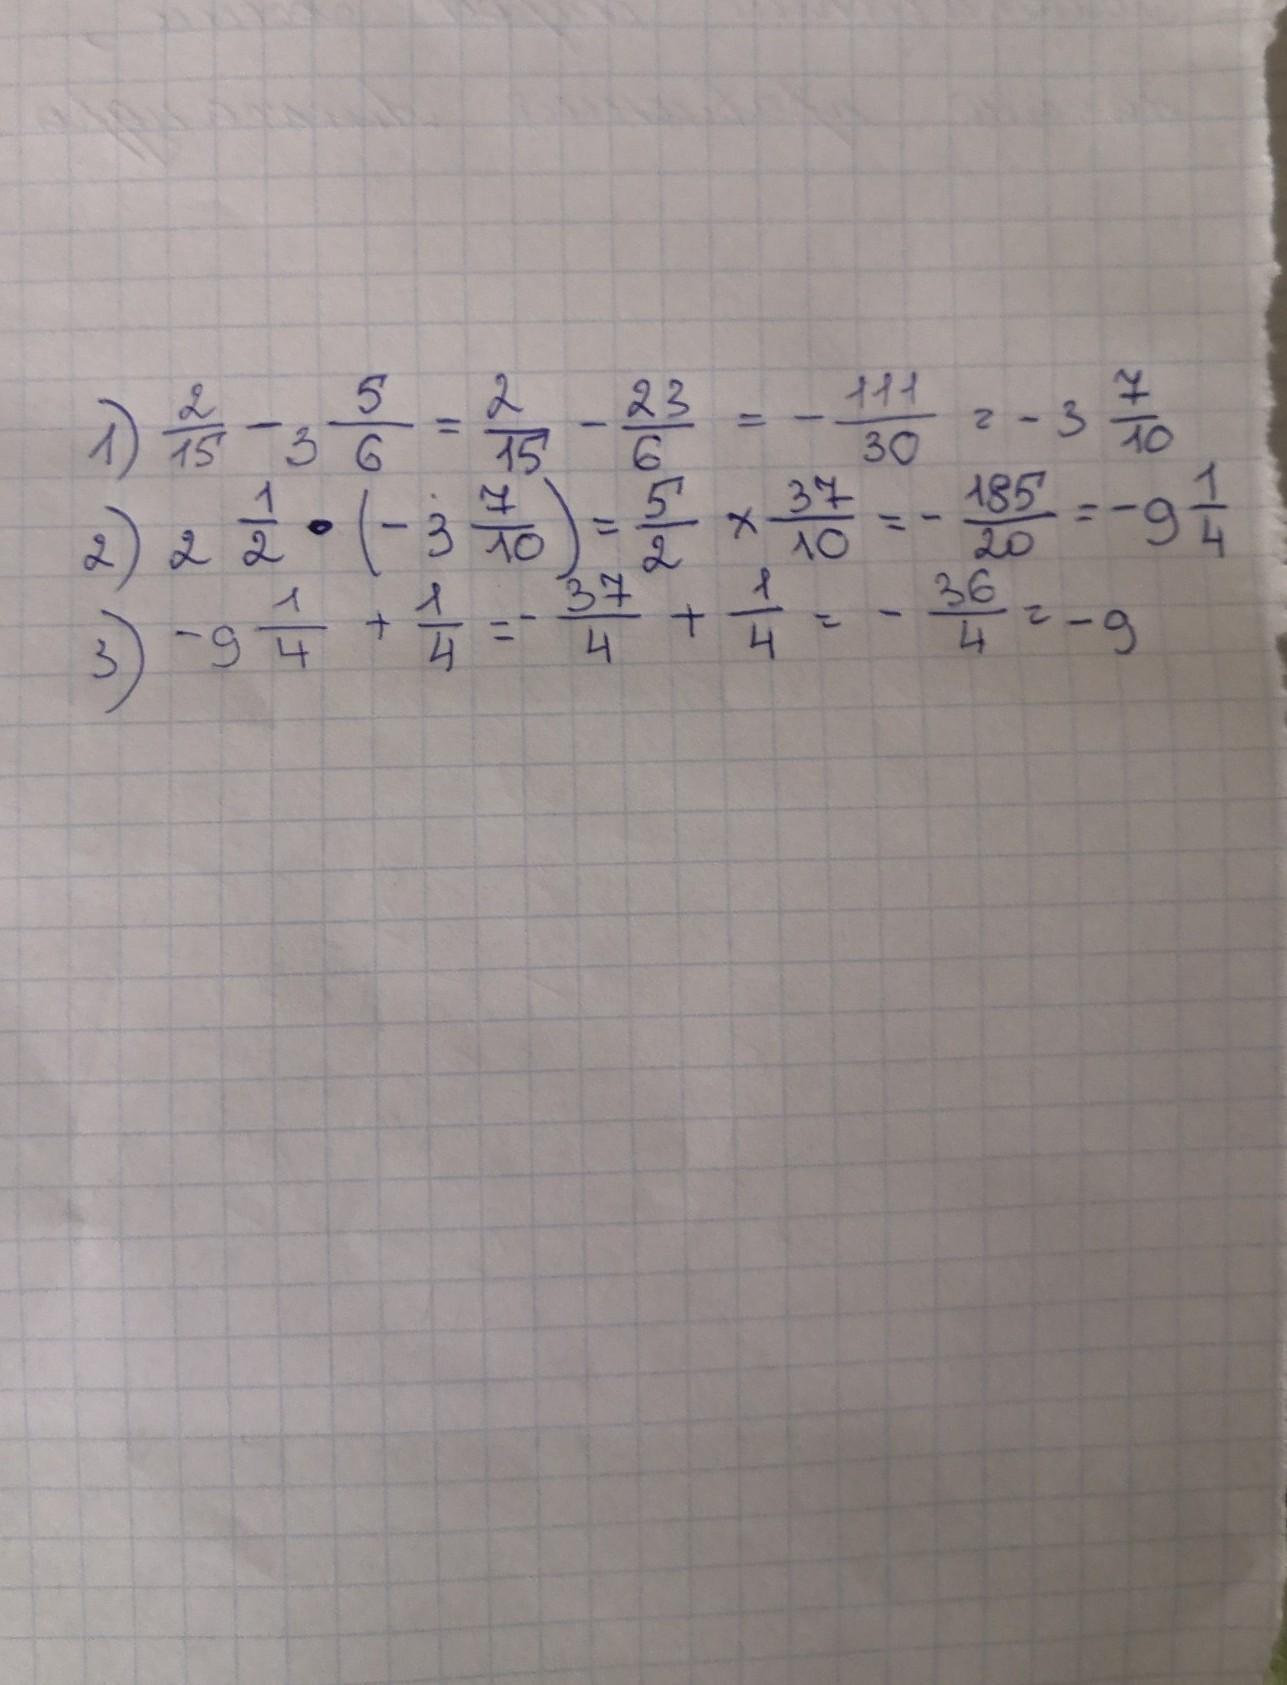 1) 2/15 - 3 5/6 = 2/15 - 23/6 = - 111/30 = - 3 7/10
2) 2 1/2 • (- 3 7/10) = 5/2 × 37/10 = - 185/20 = - 9 1/4
3) - 9 1/4 + 1/4 = - 37/4 + 1/4 = - 36/4 = - 9